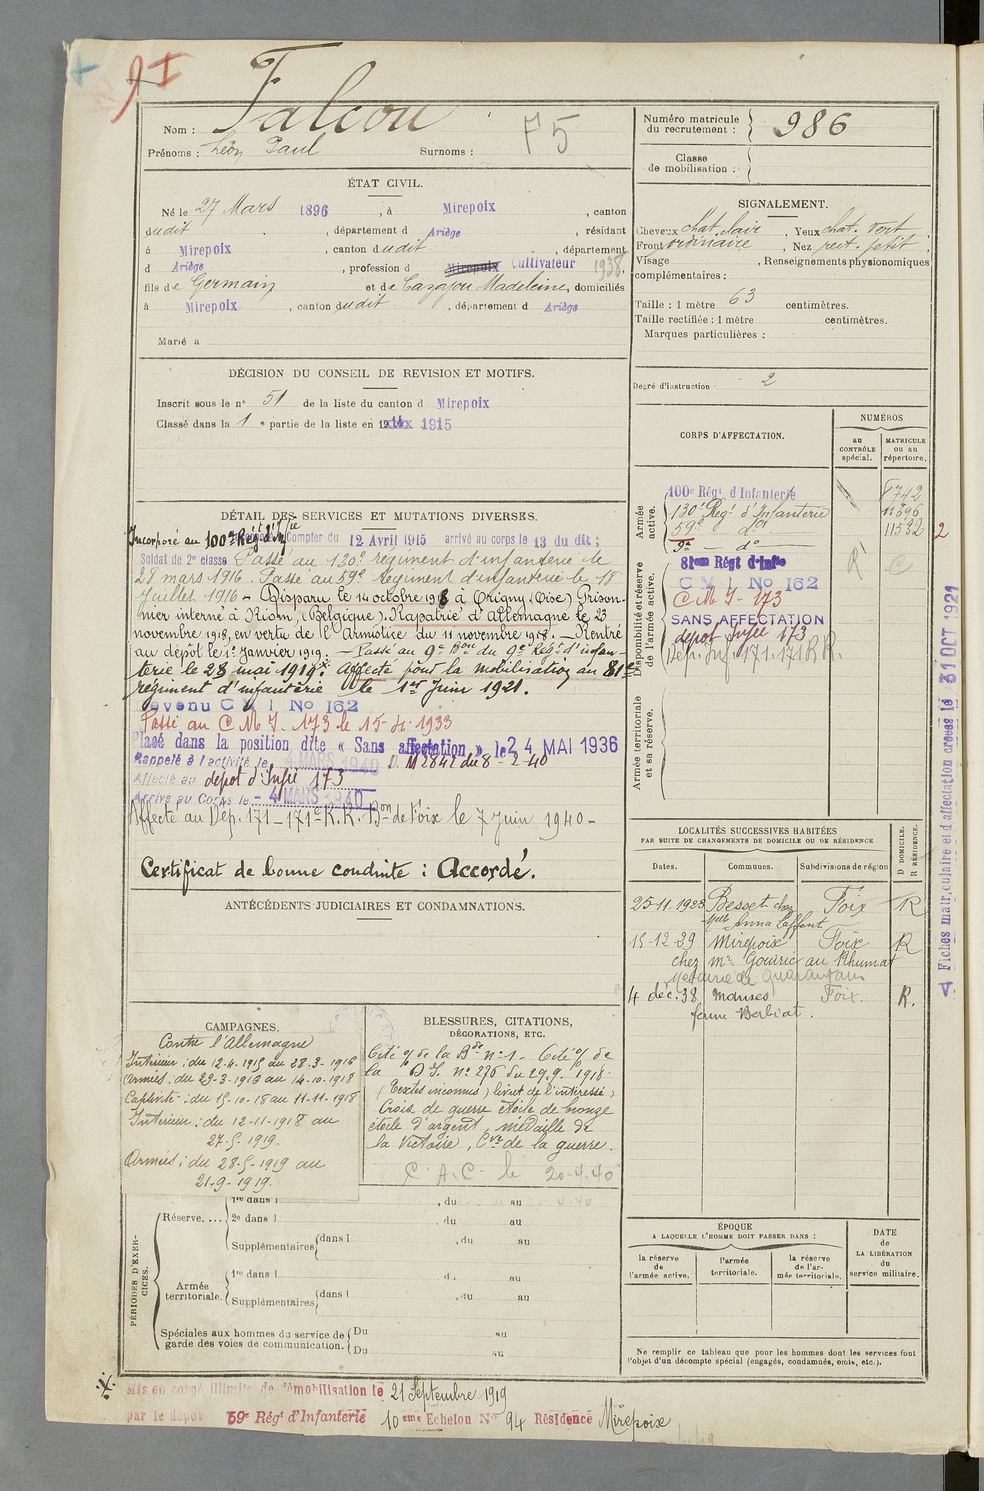 Nom : Falcou
F5
Prénoms : Léon Paul Surnoms :
Numéro matricule du recrutement : 986
Classe de mobilisation :
ÉTAT CIVIL.
Né le 27 Mars 1896, à Mirepoix, canton
dudit, département d Ariège, résidant
à Mirepoix, canton dudit, département
d Ariège, profession d Mirepoix Cultivateur 1938.
fils de Germain et de Cazajou Madeleine, domiciliés
à Mirepoix, canton dudit, département d Ariège
Marié à
SIGNALEMENT.
Cheveux chat. clair, Yeux chat. vert
Front ordinaire, Nez rect. petit
Visage , Renseignements physionomiques
complémentaires :
Taille : 1 mètre 63 centimètres.
Taille rectifiée : 1 mètre centimètres.
Marques particulières :
Degré d'instruction 2
DÉCISION DU CONSEIL DE REVISION ET MOTIFS.
Inscrit sous le n° 51 de la liste du canton d Mirepoix
Classé dans la 1e partie de la liste en 1915
DÉTAIL DES SERVICES ET MUTATIONS DIVERSES.
Incorporé au 100e Régt d'Infie Compter du 12 Avril 1915 arrivé au corps le 13 du dit ;
Soldat de 2e classe Passé au 130e régiment d'infanterie le
28 mars 1916. Passé au 59e Régiment d'infanterie le 18
Juillet 1916 – Disparu le 14 octobre 1918 à Origny (Oise) Prison-
nier interné à Riom, (Belgique). Rapatrié d'Allemagne le 23
novembre 1918, en vertu de l'Armistice du 11 novembre 1918. – Rentré
au dépôt le 1er Janvier 1919. – Passé au 9e Bon du 9e Régt d'infan-
terie le 28 mai 1919. Affecté pour la mobilisation au 81e
régiment d'infanterie le 1er Juin 1921.
Devenu C M I No 162
Passé au C M I. 173 le 15-4-1933
Placé dans la position dite « Sans affectation », le 24 MAI 1936
Rappelé à l'activité le 4 MARS 1940 D. M 2842 du 8-2-40
Affecté au depot d'Infie 173
Arrivé au Corps le - 4 MARS 1940
Affecté au Dép. 171 – 171e R.R. Bon de Foix le 7 Juin 1940 –
Certificat de bonne conduite : Accordé.
ANTÉCÉDENTS JUDICIAIRES ET CONDAMNATIONS.
CORPS D'AFFECTATION.
NUMÉROS
au CONTRÔLE spécial.
MATRICULE ou au répertoire.
Armée active.
100e Régt d'Infanterie 8742
130e Regt d'Infanterie 11696
59e do 11532 2
9e – do
Disponibilité et réserve de l'armée active.
81eme Régt d'Infie R C
C M I No 162
C M I - 173
SANS AFFECTATION
depot Infie 173
Dép. Inf. 171. 171 R.R.
Armée territoriale et sa réserve.
4 Fiches matriculaire et d'affectation créées le 31 OCT 1921
LOCALITÉS SUCCESSIVES HABITÉES
PAR SUITE DE CHANGEMENTS DE DOMICILE OU DE RÉSIDENCE
Dates. Communes. Subdivisions de région D DOMICILE. R RÉSIDENCE.
25-11-1928 Besset chez Foix R
Anna
15-12-29 Mirepoix Foix R
chez Mr Gouiric au Rhumat
4 déc. 38 Manses Foix. R.
ferme Berbiat.
CAMPAGNES.
Contre l'Allemagne
Intérieur : du 12-4-1915 au 28-3-1916
Armées : du 29-3-1916 au 14-10-1918
Captivité : du 15-10-18 au 11-11-1918
Intérieur : du 12-11-1918 au
27-5-1919.
Armées : du 28-5-1919 au
21-9-1919.
BLESSURES, CITATIONS,
DÉCORATIONS, ETC.
Cité o/ de la Bde n° 1 – Cité o/ de
la D I. n° 276 du 29.9.1918.
(Textes inconnus) livret de l'intéressé)
Croix de guerre étoile de bronze
étoile d'argent, médaille de
la Victoire, Cve de la guerre.
C.A.C. le 20-4-40
PÉRIODES D'EXERCICES.
Réserve.... 1re dans l , du au
2e dans l , du au
Supplémentaires dans l , du au
Armée territoriale. 1re dans l du au
Supplémentaires dans l du au
Spéciales aux hommes du service de garde des voies de communication. Du au
Du au
ÉPOQUE
A LAQUELLE L'HOMME DOIT PASSER DANS :
la réserve de l'armée active.
l'armée territoriale.
la réserve de l'armée territoriale.
DATE DE LA LIBÉRATION du service militaire.
Ne remplir ce tableau que pour les hommes dont les services font
l'objet d'un décompte spécial (engagés, condamnés, omis, etc.).
Mis en congé illimité de démobilisation le 21 Septembre 1919
par le dépôt 59e Régt d'Infanterie 10eme Echelon No 94 Résidence Mirepoix